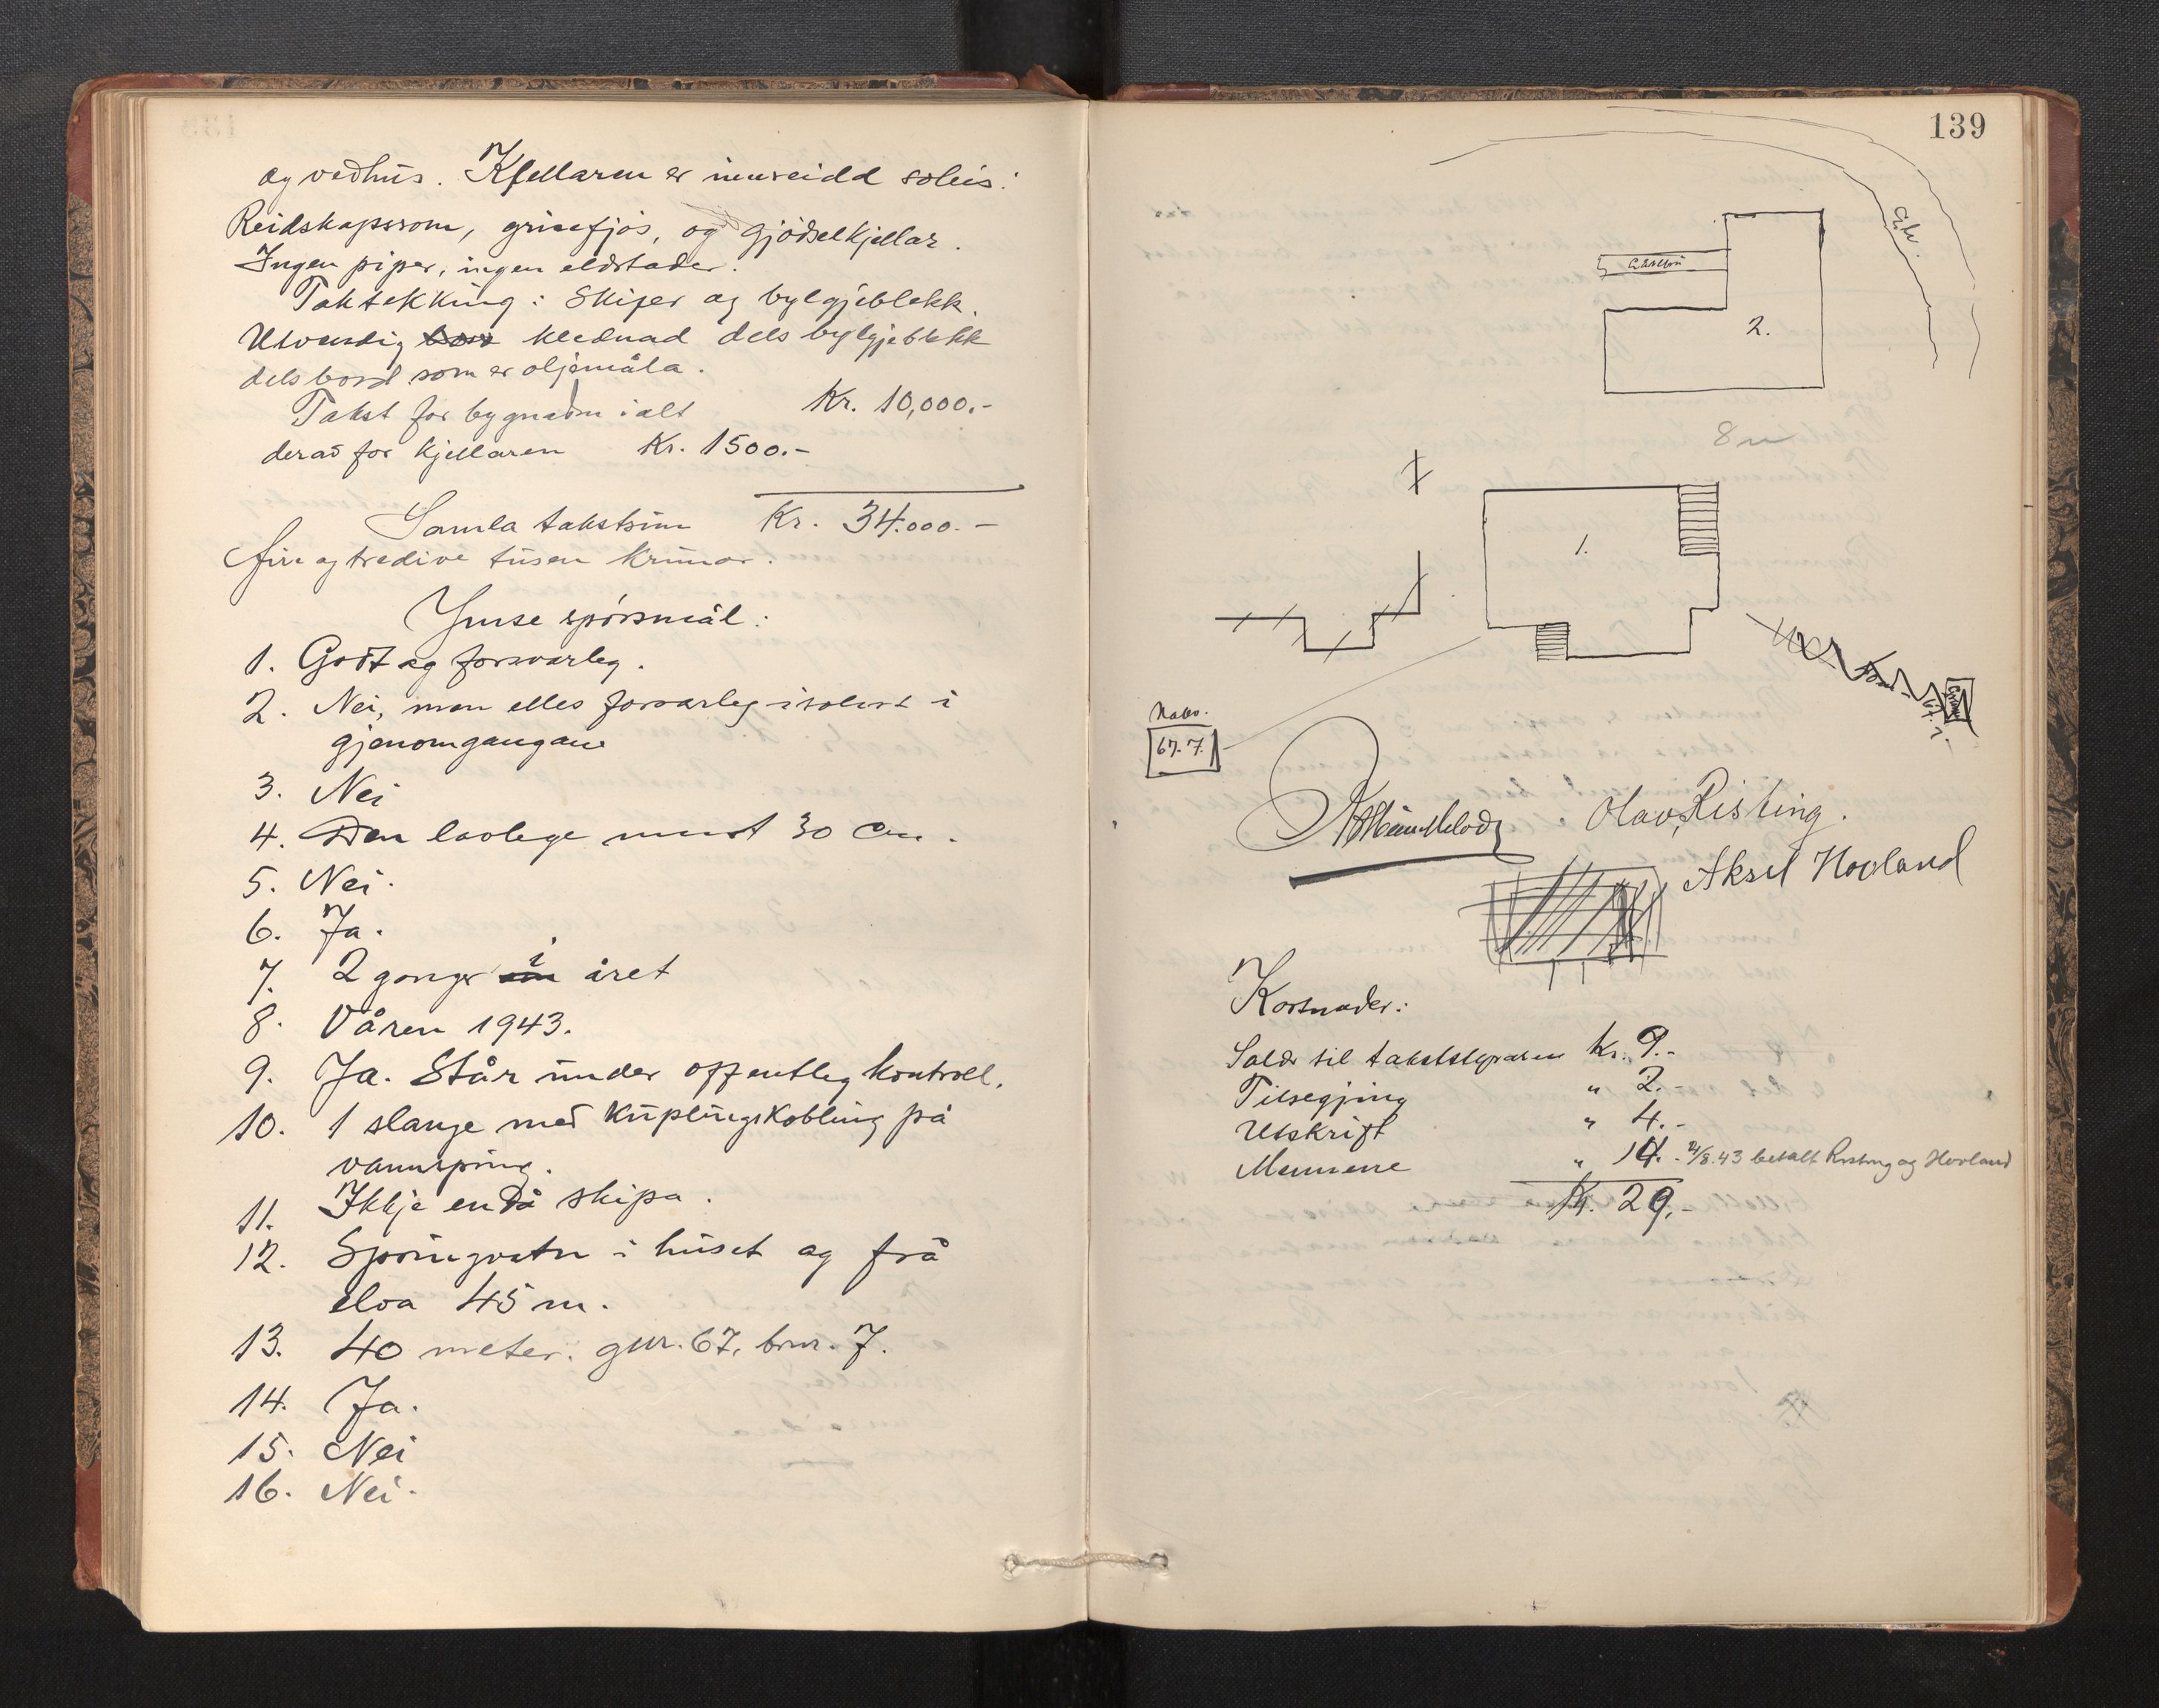 og vedhus. Kjellaren er innreidd soleis:
Reidskapsrom, grisefjös, og gjödselkjellar.
Ingen piper, ingen eldstader.
Taktekking: Skifer og bylgjeblekk.
Utvendig klednad dels bylgjeblekk
dels bord som er oljemåla.
Takst for bygnaden i alt Kr. 10,000.-
derav for kjellaren Kr. 1500.-
Samla takstsum Kr. 34.000.-
fire og tredive tusen kronor.
Ymse spörsmål:
1. Godt og forsvarleg.
2. Nei, men elles forsvarleg isolert i
gjenomgangane
3. Nei
4. Den lovlege minst 30 cm.
5. Nei.
6. Ja.
7. 2 gonger i året
8. Våren 1943.
9. Ja. Står under offentleg kontroll.
10. 1 slange med kuplingskobling på
vannspring.
11. Ikkje endå skipa.
12. Springvatn i huset og frå
elva 45 m.
13. 40 meter. gnr. 67, bnr. 7.
14. Ja.
15. Nei
16. Nei.
139
Elv.
2.
8 m
1.
Nabo.
67.7.
Olav Risting.
Aksel Hovland
Kostnader:
Solds til takststyraren Kr. 9.-
Tilsegjing " 2.-
Utskrift " 4.-
Mennene " 14.- 21/8.43 betalt Risting og Hovland
Kr. 29.-